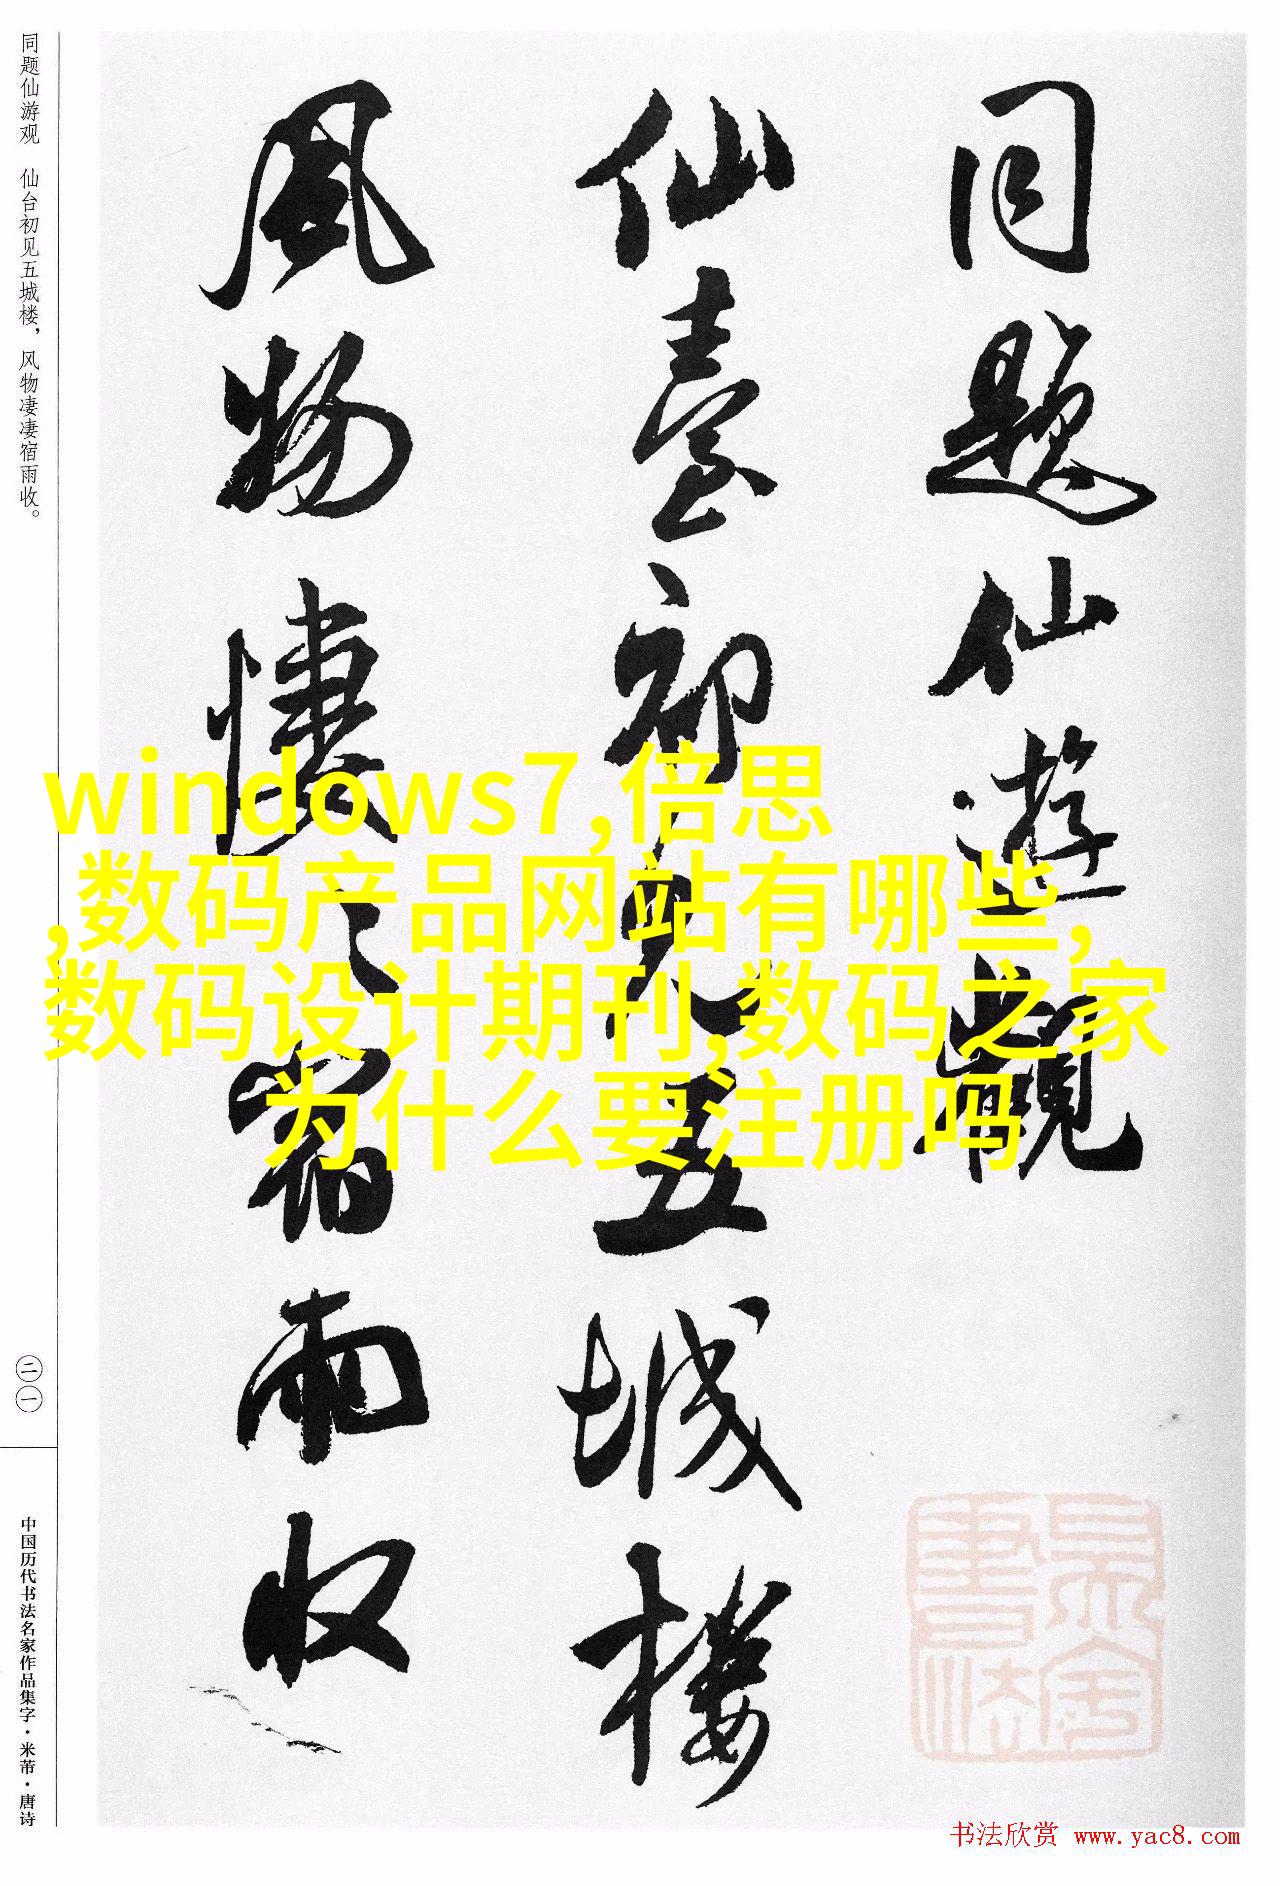 同题仙游观 仙台初见五城楼，风物凄凄宿雨收。
二一
中国历代书法名家作品集字·米芾·唐诗
同題仙遊觀
仙臺初見五城樓
風物悽〻宿雨收
windows7,倍思
,数码产品网站有哪些,
数码设计期刊,数码之家
为什么要注册吗
书法欣赏 www.yac8.com